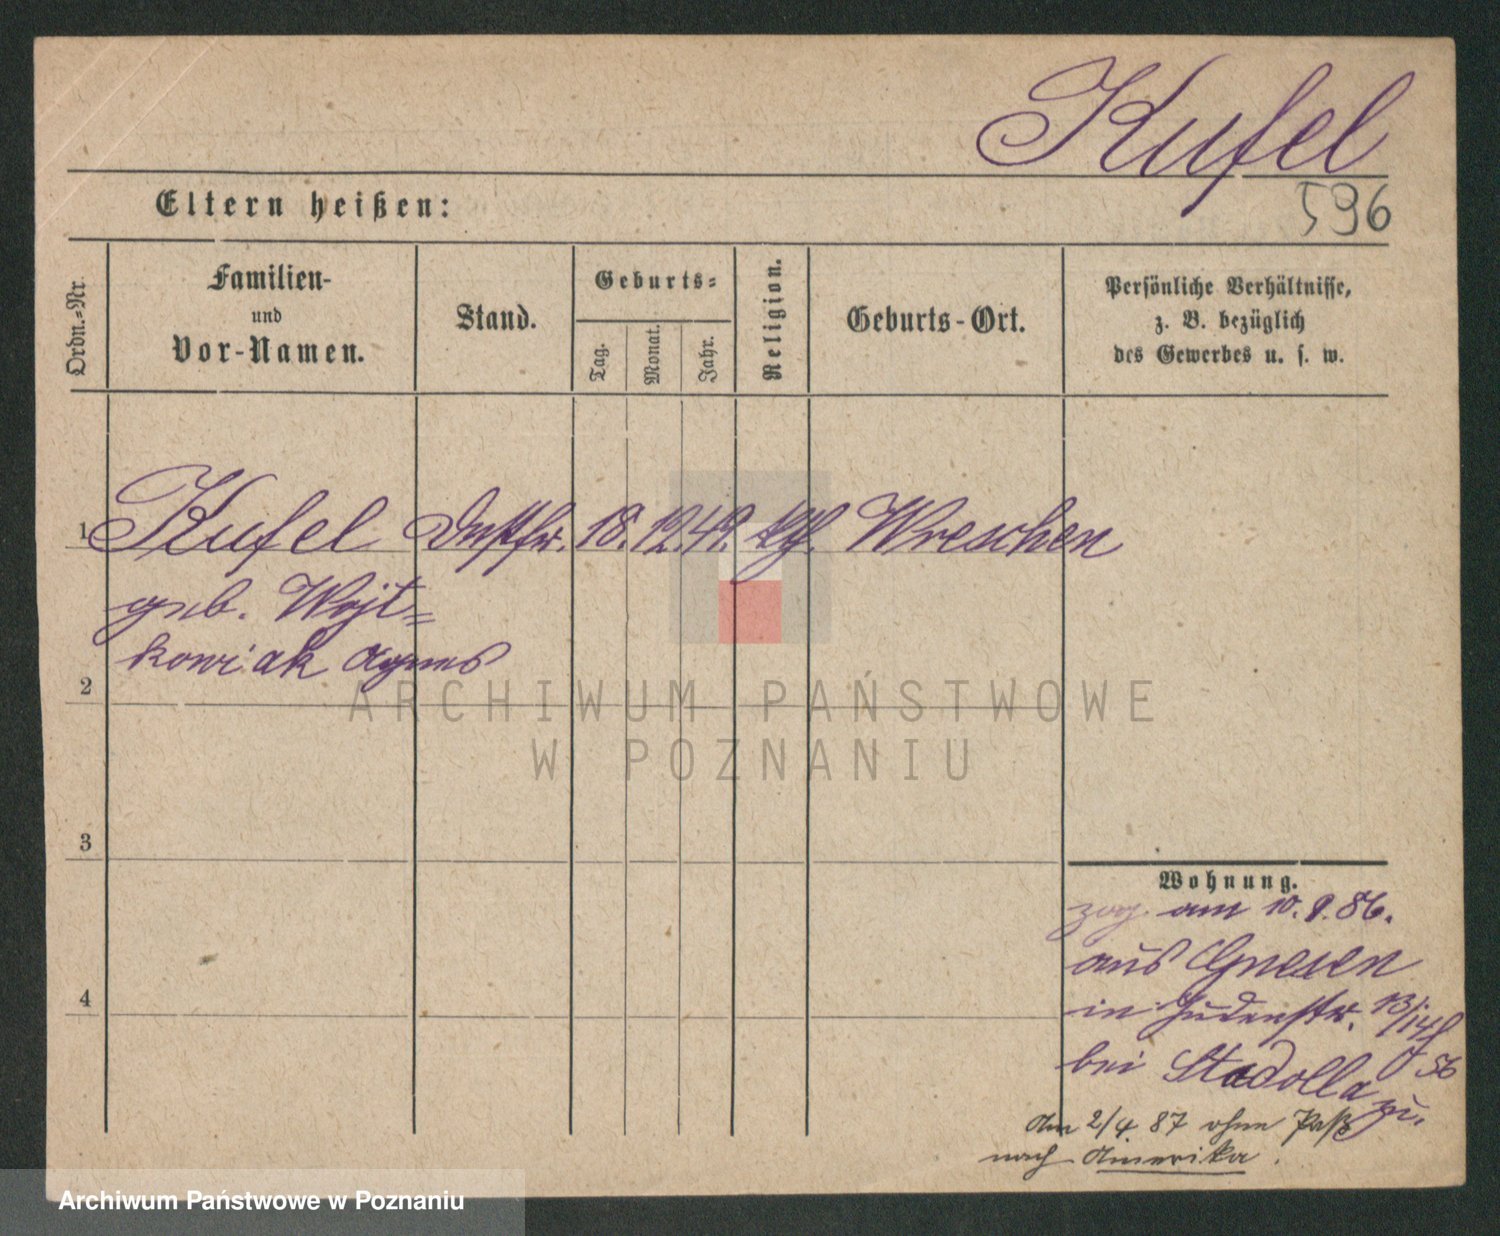 Kufel
596
Eltern heißen:
Ordn.-Nr.
Familien-
und
Vor-Namen.
Stand.
Geburts-
Tag.
Monat.
Jahr.
Religion.
Geburts-Ort.
Persönliche Verhältnisse,
z. B. bezüglich
des Gewerbes u. s. w.
1 Kufel 18. 12. 49. kth. Wreschen
geb. Wojt-
kowiak Agnes
2
ARCHIWUM PAŃSTWOWE
W POZNANIU
3
Wohnung.
zog am 10. 9. 86.
aus Gnesen
4
in Judenstr. 13/14
bei Stadolla zu.
Am 2/4 87 ohne Paß
nach Amerika.
Archiwum Państwowe w Poznaniu